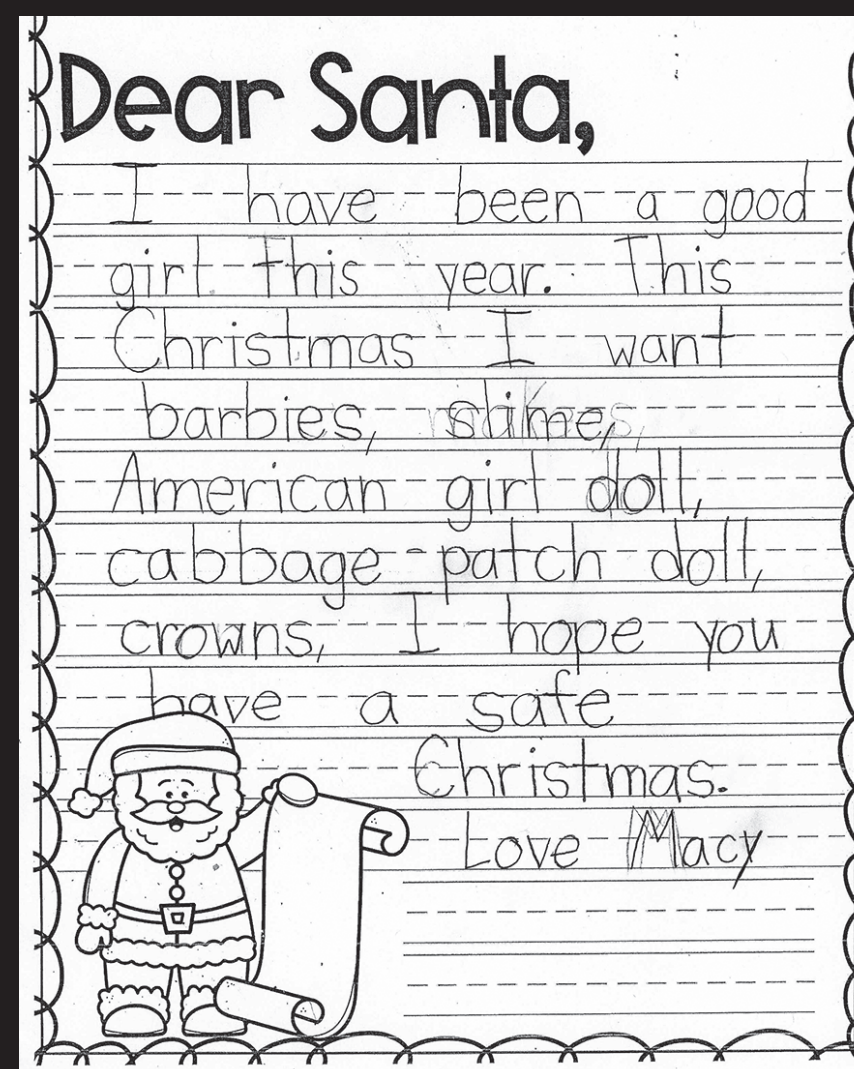 Dear Santa,
I have been a good
girl this year. This
Christmas I want
barbies, slime,
American girl doll,
cabbage patch doll,
crowns, I hope you
have a safe
Christmas.
Love Macy